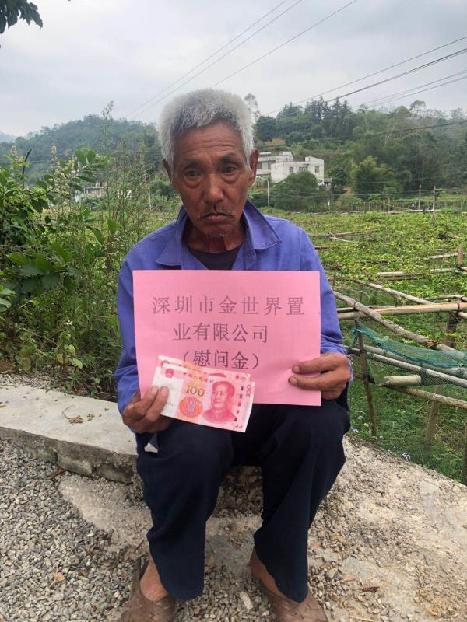 深圳市金世界置
业有限公司
(慰问金)
100